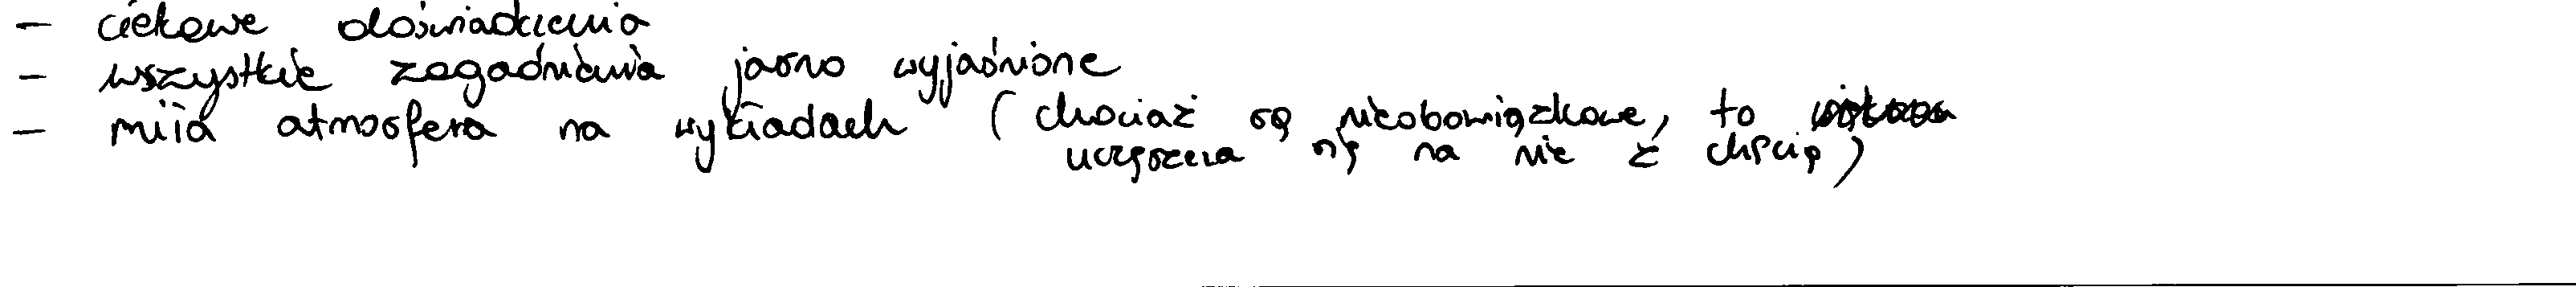 - ciekawe doświadczenia
- wszystkie zagadnienia jasno wyjaśnione
- miła atmosfera na wykładach (chociaż są nieobowiązkowe, to
uczęszcza się na nie z chęcią)